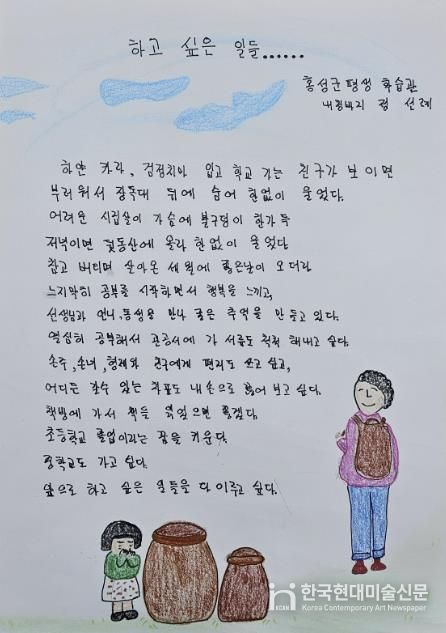 하고 싶은 일들......
홍성군 평생 학습관
내 선례
하얀 카라, 검정치마 입고 학교 가는 친구가 보이면
부러워서 장독대 뒤에 숨어 한없이 울었다.
어려운 시집살이 가슴에 불구덩이 한가득
저녁이면 뒷동산에 올라 한없이 울었다
참고 버티며 살아온 세월에 좋은날이 오더라
느지막히 공부를 시작하면서 행복을 느끼고,
선생님과 언니, 동생을 만나 좋은 추억을 만들고 있다.
열심히 공부해서 관공서에 가 서류도 척척 해내고 싶다.
손주, 손녀, 형제와 친구에게 편지도 쓰고 싶고,
어디든 갈수 있는 차표도 내손으로 끊어 보고 싶다.
책방에 가서 책을 읽었으면 좋겠다.
초등학교 졸업이라는 꿈을 키운다.
중학교도 가고 싶다.
앞으로 하고 싶은 일들을 다 이루고 싶다.
KCAN
한국현대미술신문
Korea Contemporary Art Newspaper